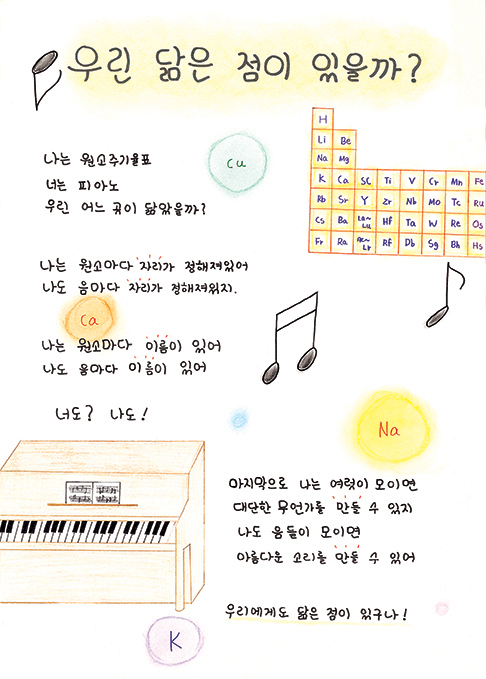 우린 닮은 점이 있을까?
나는 원소주기율표
너는 피아노
우린 어느 곳이 닮았을까?
Cu
H
Li Be
Na Mg
K Ca Sc Ti V Cr Mn Fe
Rb Sr Y Zr Nb Mo Tc Ru
Cs Ba La~Lu Hf Ta W Re Os
Fr Ra Ac~Lr Rf Db Sg Bh Hs
나는 원소마다 자리가 정해져있어
나도 음마다 자리가 정해져워지.
Ca
나는 원소마다 이름이 있어
나도 음마다 이름이 있어
너도? 나도!
Na
마지막으로 나는 여럿이 모이면
대단한 무언가를 만들 수 있지
나도 음들이 모이면
아름다운 소리를 만들 수 있어
우리에게도 닮은 점이 있구나!
K